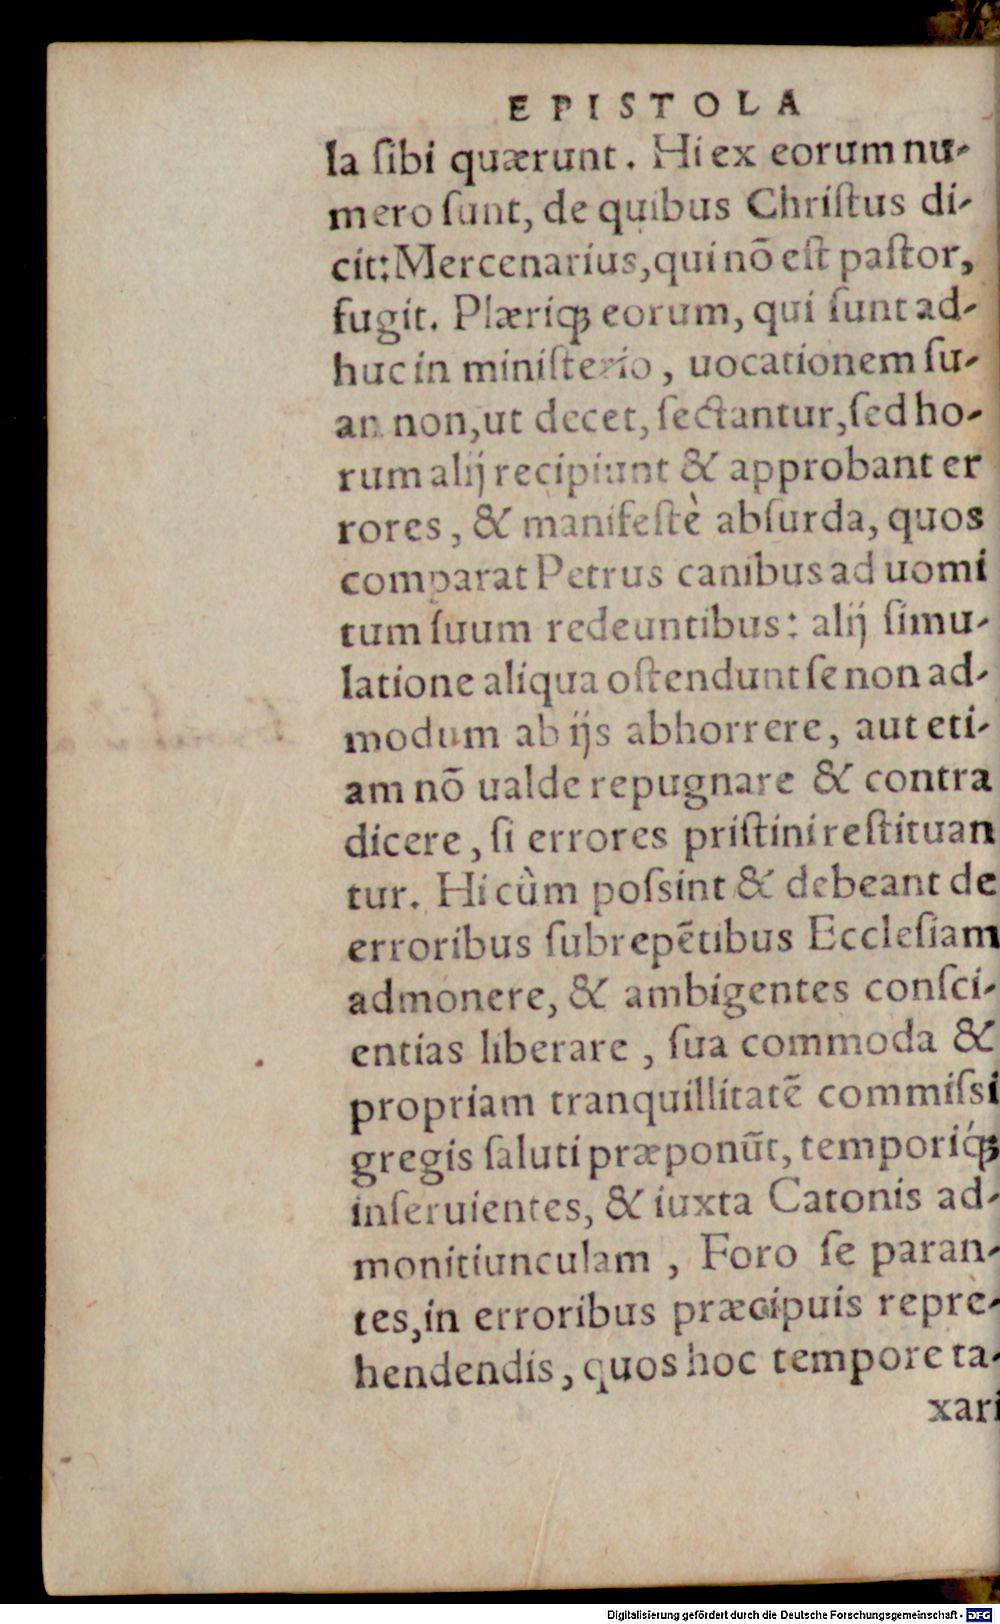 EPISTOLA
la ſibi quærunt. Hi ex eorum nu-
mero ſunt, de quibus Chriſtus di-
cit: Mercenarius, qui nõ eſt paſtor,
fugit. Plæriqꝫ eorum, qui ſunt ad-
huc in miniſterio, uocationem ſu-
am non, ut decet, ſectantur, ſed ho-
rum alij recipiunt & approbant er
rores, & manifeſtè abſurda, quos
comparat Petrus canibus ad uomi
tum ſuum redeuntibus: alij ſimu-
latione aliqua oſtendunt ſe non ad-
modum ab ijs abhorrere, aut eti-
am nõ ualde repugnare & contra
dicere, ſi errores priſtini reſtituan
tur. Hi cùm poſsint & debeant de
erroribus ſubrepẽtibus Eccleſiam
admonere, & ambigentes conſci-
entias liberare, ſua commoda &
propriam tranquillitatẽ commiſsi
gregis ſaluti præponũt, temporiq́ꝫ
inſeruientes, & iuxta Catonis ad-
monitiunculam, Foro ſe paran-
tes, in erroribus præcipuis repre-
hendendis, quos hoc tempore ta-
xari
Digitalisierung gefördert durch die Deutsche Forschungsgemeinschaft - DFG